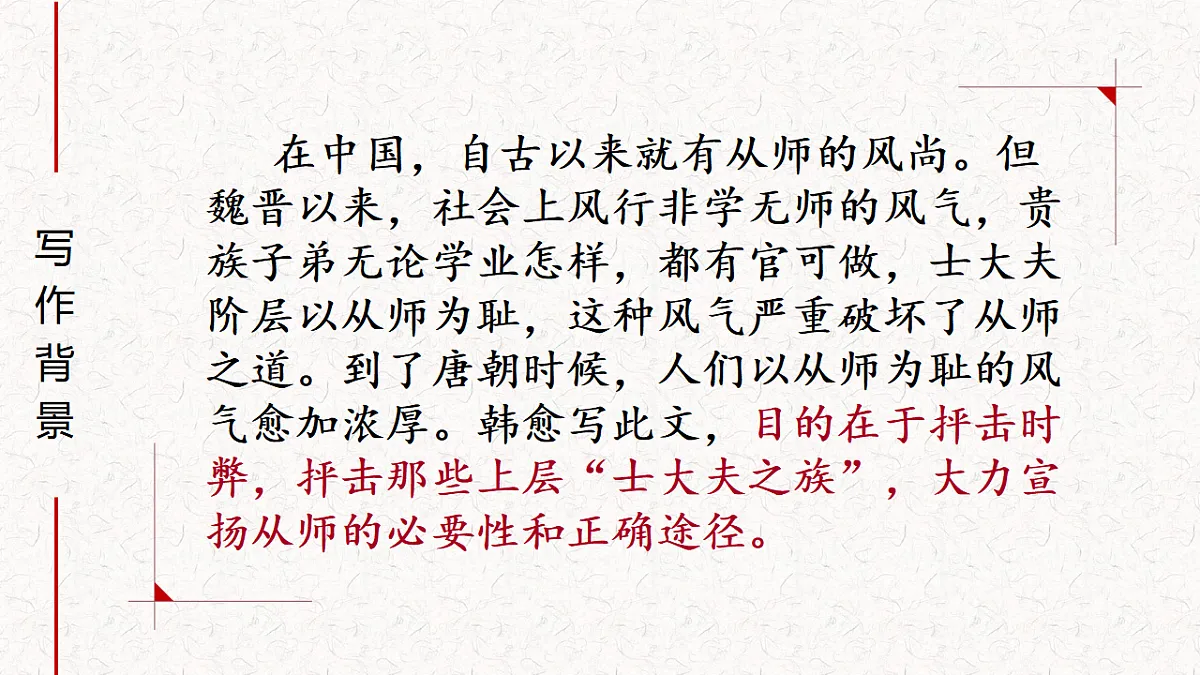 写作背景
在中国，自古以来就有从师的风尚。但
魏晋以来，社会上风行非学无师的风气，贵
族子弟无论学业怎样，都有官可做，士大夫
阶层以从师为耻，这种风气严重破坏了从师
之道。到了唐朝时候，人们以从师为耻的风
气愈加浓厚。韩愈写此文，目的在于抨击时
弊，抨击那些上层“士大夫之族”，大力宣
扬从师的必要性和正确途径。